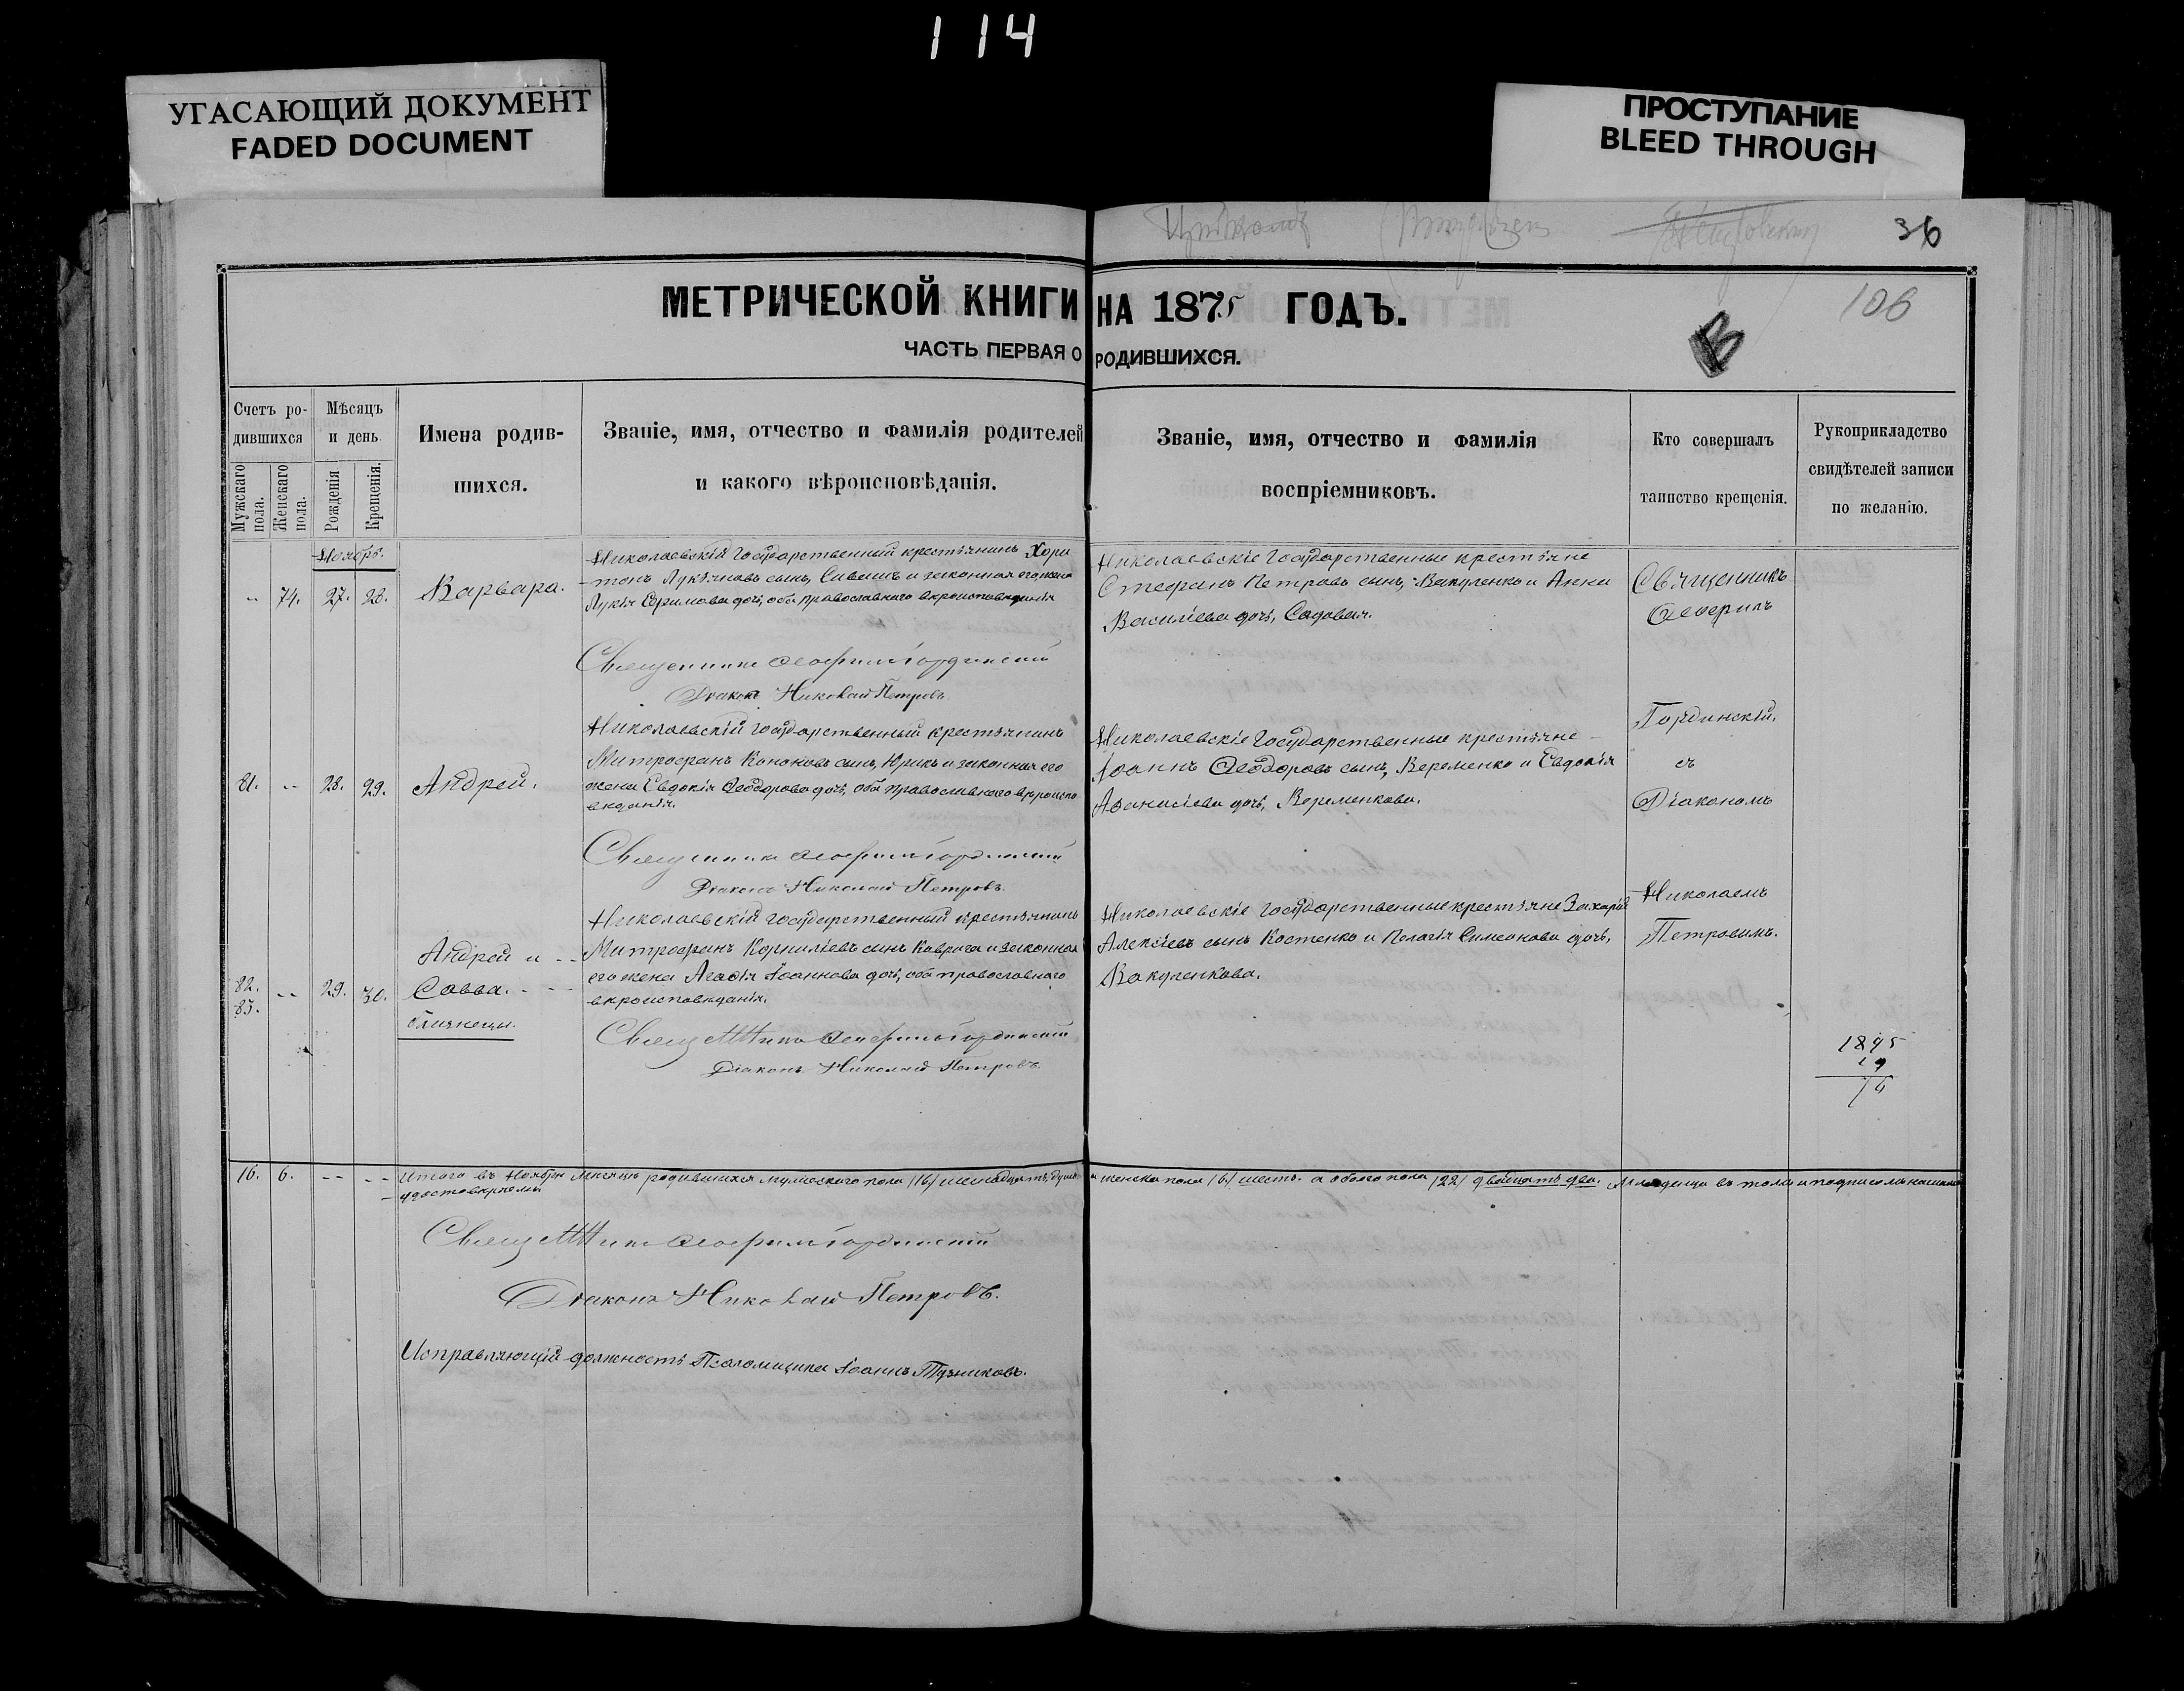 114
УГАСАЮЩИЙ ДОКУМЕНТ
FADED DOCUMENT
ПРОСТУПАНИЕ
BLEED THROUGH
36
106
МЕТРИЧЕСКОЙ КНИГИ НА 1875 ГОДЪ.
ЧАСТЬ ПЕРВАЯ О РОДИВШИХСЯ.
В
Счетъ ро-
дившихся
Мужскаго пола.
Женскаго пола.
Мѣсяцъ
и день
Рожденія
Крещенія.
Имена родив-
шихся.
Званіе, имя, отчество и фамилія родителей
и какого вѣроисповѣданія.
Званіе, имя, отчество и фамилія
воспріемниковъ.
Кто совершалъ
таинство крещенія.
Рукоприкладство
свидѣтелей записи
по желанію.
Ноябрь.
" 74. 27. 28. Варвара.
Николаевскій Государственный крестьянинъ Хари
тонъ Лукьяновъ сынъ, Сивашъ и законная его жена
Лукія Ефимова дочь, оба православнаго вѣроисповѣданія
Николаевскіе Государственные крестьяне
Стефанъ Петровъ сынъ, Вакуленко и Анна
Василіева дочь, Садовая.
Священникъ
Ѳеофилъ
Гординскій,
съ
Діакономъ
Николаемъ
Петровымъ.
Священникъ Ѳеофилъ Гординскій
Діаконъ Николай Петровъ.
81. -- 28. 29. Андрей.
Николаевскій Государственный крестьянинъ
Митрофанъ Кононовъ сынъ, Юрикъ и законная его
жена Евдокія Ѳеодорова дочь, оба православнаго вѣроиспо
вѣданія.
Николаевскіе Государственные крестьяне
Іоаннъ Ѳеодоровъ сынъ, Веременко и Евдокія
Аѳанасіева дочь, Веременкова.
Священникъ Ѳеофилъ Гординскій
Діаконъ Николай Петровъ.
82.
83. -- 29. 30. Андрей и --
Савва. --
близнецы.
Николаевскій Государственный крестьянинъ
Митрофанъ Корниліевъ сынъ Коврига и законная
его жена Агафія Іоаннова дочь, оба православнаго
вѣроисповѣданія.
Николаевскіе Государственные крестьяне Захарій
Алексіевъ сынъ Костенко и Пелагія Симеонова дочь,
Вакуленкова.
Священникъ Ѳеофилъ Гординскій
Діаконъ Николай Петровъ.
1895
19
76
16. 6. -- -- Итого въ Ноябрѣ мѣсяцѣ родившихся мужескаго пола /16/ шеснадцать душъ и женска пола /6/ шесть. а обоего пола /22/ двадцать два.
удостовѣряемъ
Священникъ Ѳеофилъ Гординскій
Діаконъ Николай Петровъ.
Исправляющій должность Псаломщика Іоаннъ Тузниковъ.